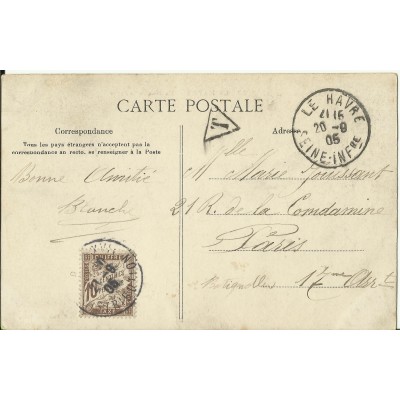 CARTE POSTALE
Correspondance
Adresse
Tous les pays étrangers n'acceptent pas la
correspondance au recto, se renseigner à la Poste
T
LE HAVRE
20 -9
05
SEINE-INFRE
Bonne Amitié
Blanche
Melle Marie Toussaint
21 R. de la Condamine
Paris
17me Arrt
10